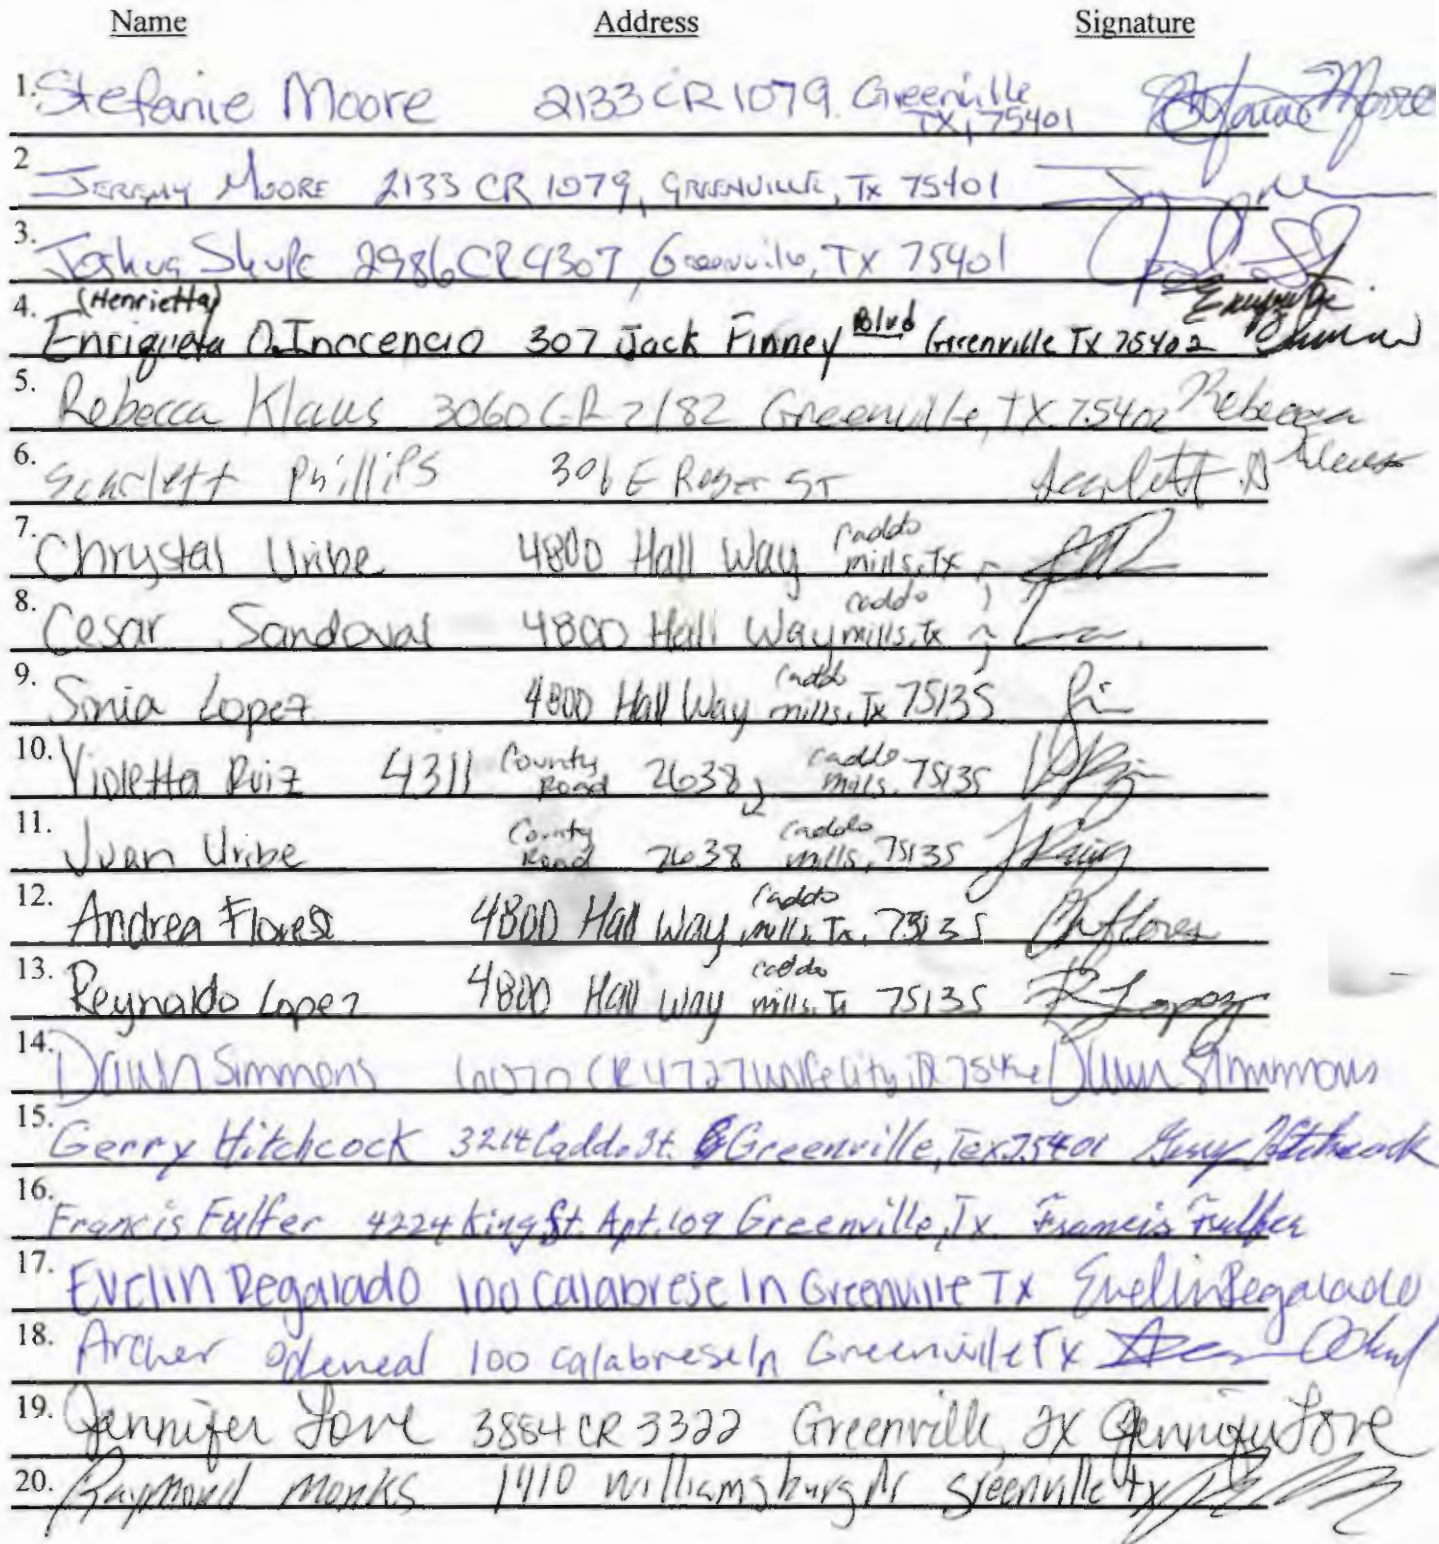 Name Address Signature
1. Stefanie Moore 2133 CR 1079. Greenville TX, 75401 Stefanie Moore
2 Jeremy Moore 2133 CR 1079, Greenville, Tx 75401
3. Joshua 2986 CR 4307, Greenville, TX 75401
4. (Henrietta) Enriqueta O. Inocencio 307 Jack Finney Blvd Greenville TX 75402
5. Rebecca Klaus 3060 CR 2182 Greenville, TX 75402 Rebecca Klaus
6. Scarlett Phillips 306 E ST Scarlett
7. Chrystal Uribe 4800 Hall Way Caddo mills, Tx
8. Cesar Sandoval 4800 Hall Way caddo mills, Tx
9. Sonia Lopez 4800 Hall Way Caddo mills, Tx 75135
10. Violetta Ruiz 4311 County Road 2638, caddo mills, 75135
11. Juan Uribe County Road 2638 Caddo mills, 75135
12. Andrea Flores 4800 Hall Way Caddo mills, Tx, 75135 Flores
13. Reynaldo Lopez 4800 Hall Way caddo mills, Tx 75135 R Lopez
14. Dawn Simmons CR 4727 Dawn Simmons
15. Gerry Hitchcock 3214 Caddo St. Greenville, Tex 75401 Gerry Hitchcock
16. Francis Fulfer 4224 King St. Apt. 109 Greenville, Tx. Francis Fulfer
17. Evelin Regalado 100 Calabrese ln Greenville Tx Evelin Regalado
18. Archer Odeneal 100 calabrese ln Greenville Tx
19. Jennifer Love 3884 CR 3322 Greenville, TX Jennifer Love
20. Raymond Monks 1410 Williamsburg Dr Greenville tx